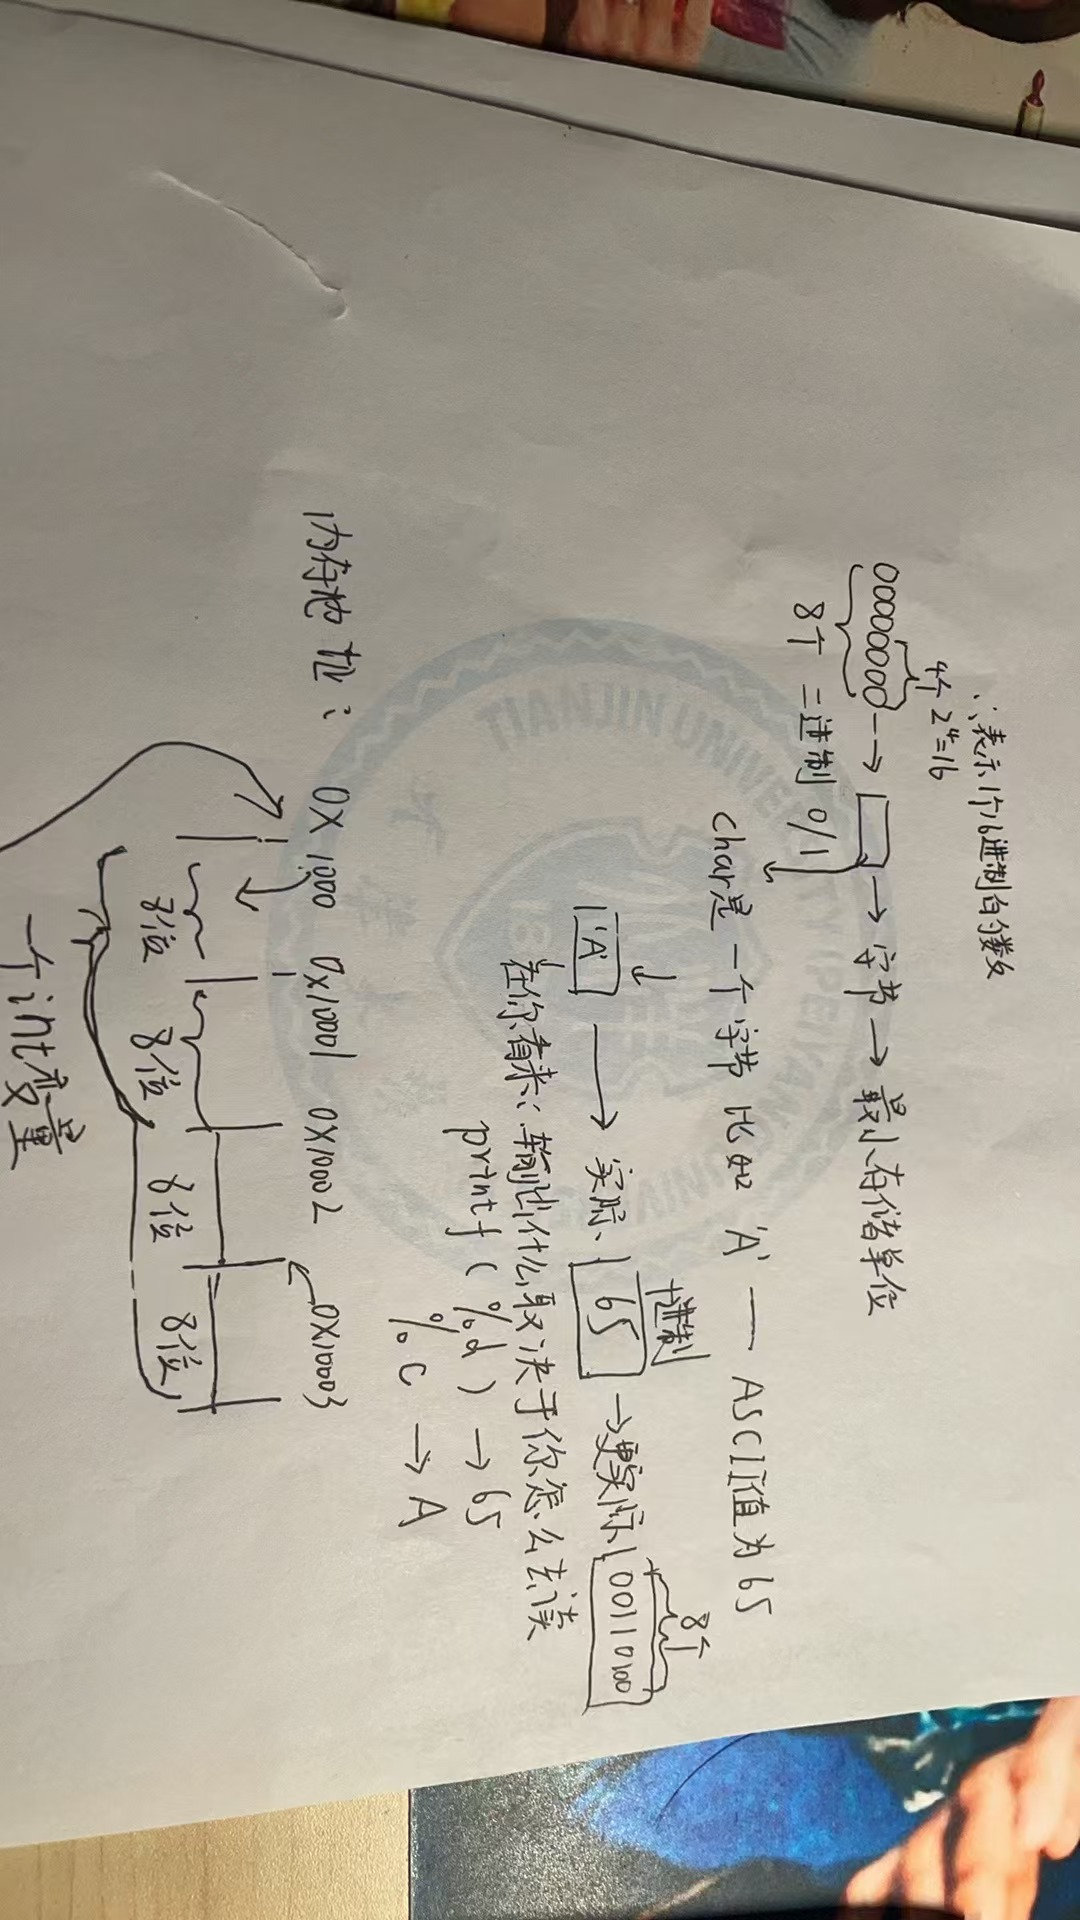 ∴表示1个16进制的数
4个 2⁴=16
00000000 → □ → 字节 → 最小存储单位
8个 二进制 0/1
char是一个字节 比如 'A' — ASCII值为65
十进制
8个
'A' → 实际 65 → 更实际 00110100
在你看来: 输出什么取决于你怎么去读
printf ( %d ) → 65
%c → A
内存地址: 0X1000 0X1001 0X1002 0X1003
8位 8位 8位 8位
一个int变量
TIANJIN UNIVERSITY (PEIYANG UNIVERSITY)